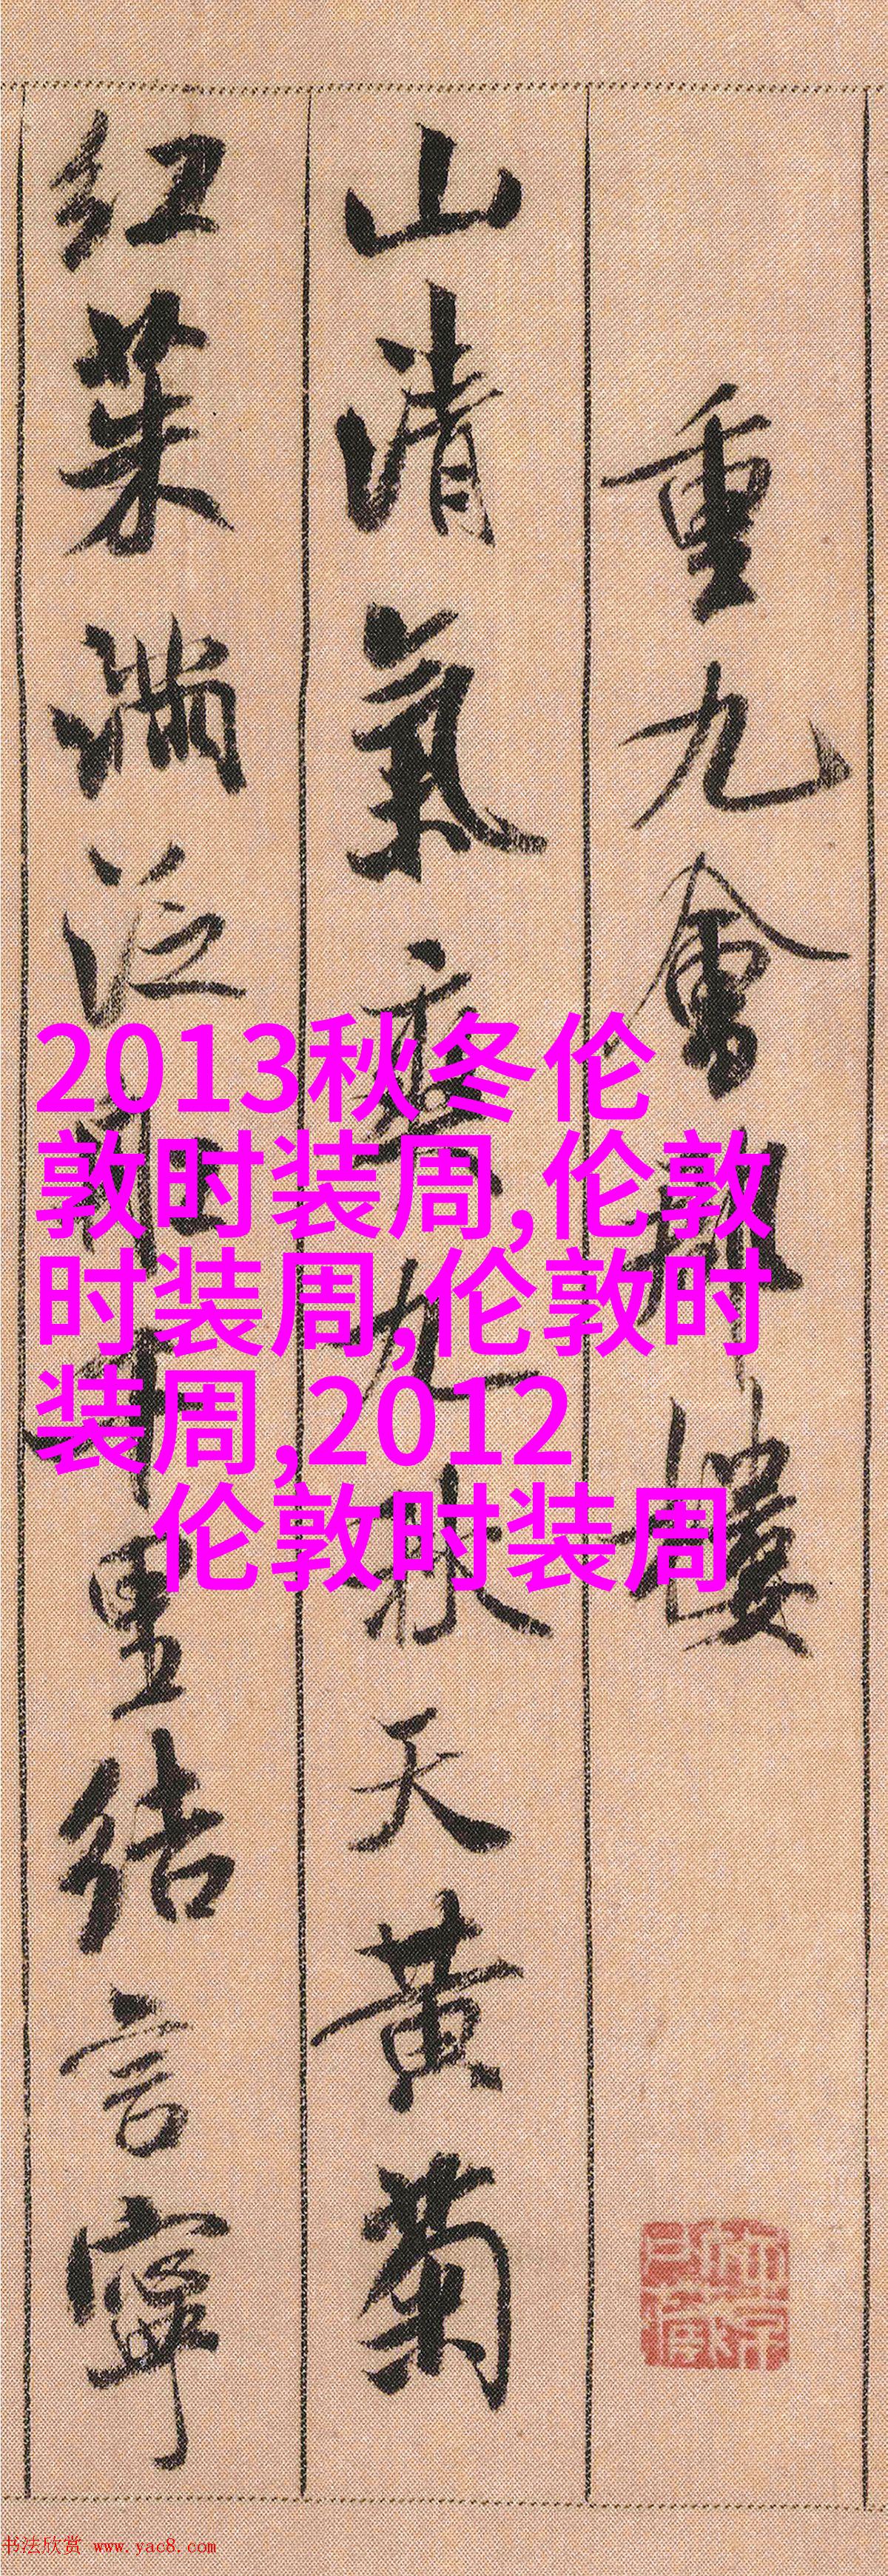 重九會郡樓
山清氣爽九秋天黃菊
紅茱滿泛船千里結言寧
2013秋冬伦
敦时装周,伦敦
时装周,伦敦时
装周,2012
伦敦时装周
书法欣赏 www.yac8.com